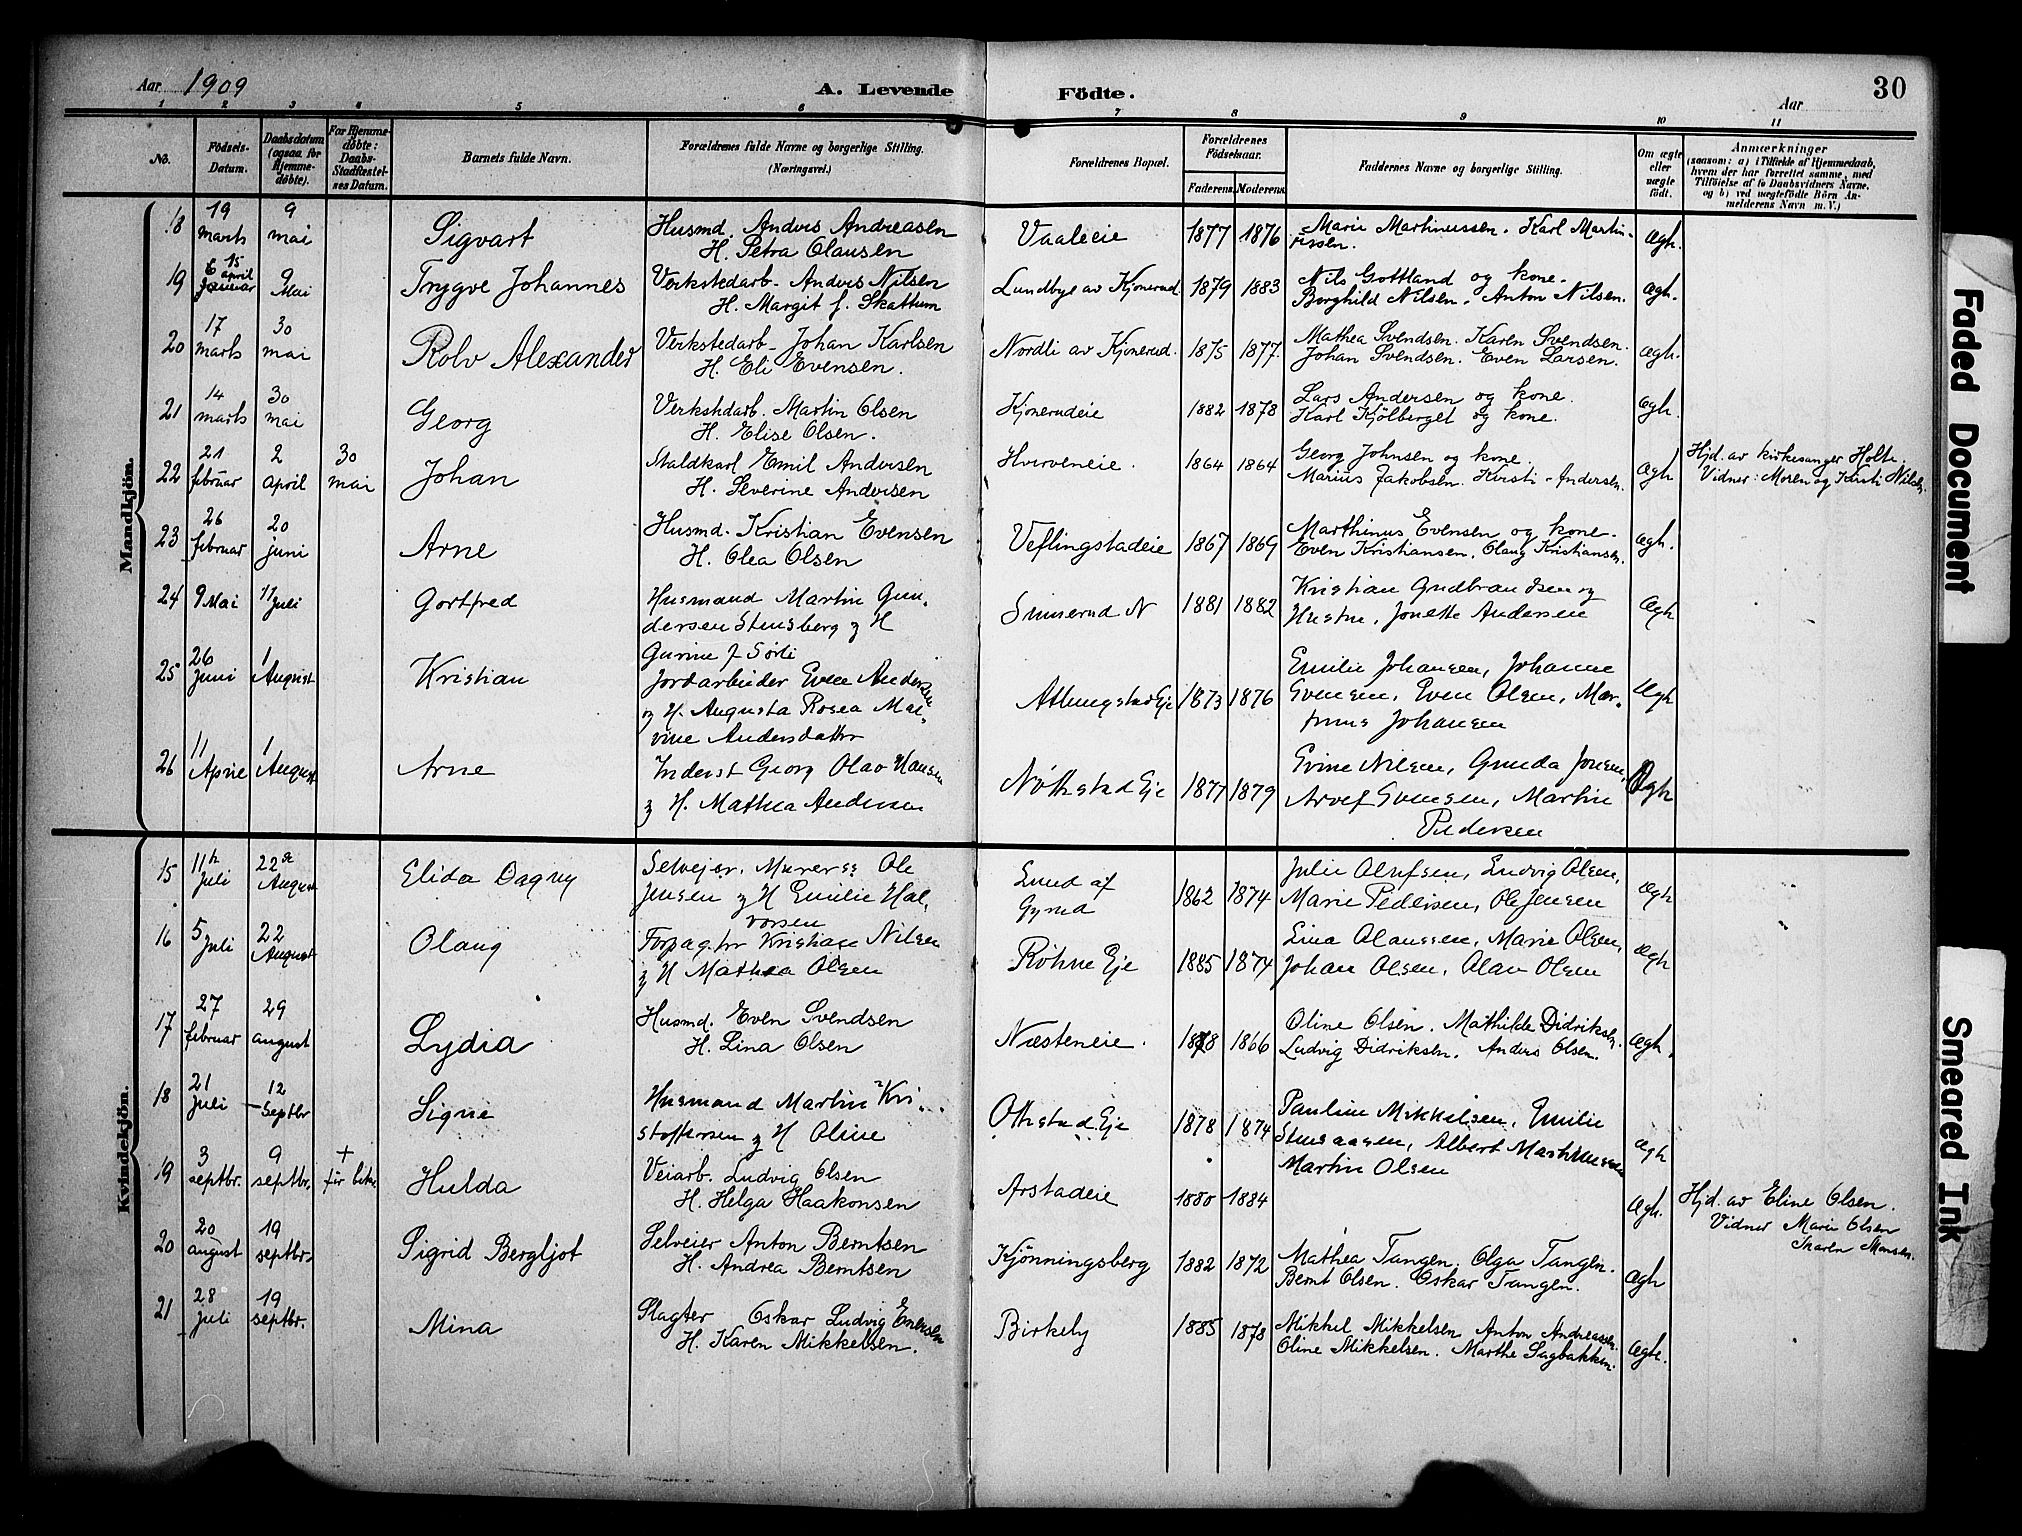 Aar 1909
A. Levende Födte.
Aar
30
1 2 3 4 5 6 7 8 9 10 11
No.
Födsels-Datum.
Daabsdatum (ogsaa for Hjemme-döbte).
For Hjemme-döbte: Daabs-Stadfæstel-ses Datum.
Barnets fulde Navn.
Forældrenes fulde Navne og borgerlige Stilling. (Næringsvei.)
Forældrenes Bopæl.
Forældrenes Födselsaar.
Faderens. Moderens.
Faddernes Navne og borgerlige Stilling.
Om ægte eller uægte födt.
Anmærkninger
(saasom: a) i Tilfælde af Hjemmedaab,
hvem der har forrettet samme, med
Tilföielse af to Daabsvidners Navne,
og b) ved uægtefödte Börn An-
melderens Navn m. V.)
Mandkjön.
18 19 marts 9 mai Sigvart Husmd. Anders Andreasen
H. Petra Olausen Vaaleeie 1877 1876 Marie Martinussen. Karl Martin-
ussen. Ægh.
19 15 april 9 Mai Trygve Johannes Verkstedarb. Anders Nilsen
H. Margit f. Skattum Lundbye av Kjonerud 1879 1883 Nils Gottland og kone.
Borghild Nilsen. Anton Nilsen. Ægh.
20 17 marts 30 mai Rolv Alexander Verkstedarb. Johan Karlsen
H. Eli Evensen. Nordli av Kjonerud. 1875 1877 Mathea Svendsen. Karen Svendsen.
Johan Svendsen. Even Larsen. Ægh.
21 14 marts 30 mai Georg Verkstdarb. Martin Olsen
H. Elise Olsen. Kjonerudeie 1882 1878 Lars Andersen og kone.
Karl Kjölberget og kone. Ægh.
22 21 februar 2 april 30 mai Johan Staldkarl Emil Andersen
H. Severine Andersen Hverveneie. 1864 1864 Georg Johnsen og kone.
Marius Jakobsen. Kirsti Andersen. Ægh Hjd. av kirkesanger Holte.
Vidner: Moren og Kirsti Nilsen.
23 26 februar 20 juni Arne Husmd. Kristian Evensen
H. Olea Olsen Veflingstadeie 1867 1869 Marthinus Evensen og kone.
Even Kristiansen. Olaug Kristiansen. Ægh.
24 9 Mai 11 Juli Gottfred Husmand Martin Gun-
dersen Stensberg og H
Gurine f Sørli Sinnerud N 1881 1882 Kristian Gudbrandsen og
Hustru, Jonette Andersen Ægh
25 26 Juni 1 August Kristian Jordarbeider Even Andersen
og H. Augusta Rosea Mal-
vine Andersdatter Attungstad Eje 1873 1876 Emilie Johansen, Johanne
Svensen, Even Olsen, Mar-
tinus Johansen Ægh
26 11 April 1 August Arne Inderst Georg Olav Hansen
og H. Mathea Andersen Nøttestad Eje 1877 1879 Evine Nilsen, Gunda Jonsen,
Arvef Svensen, Martin
Pedersen Ægh
Kvindekjön.
15 11te Juli 22de August Elida Dagny Selvejer, Murer Ole
Jensen og H Emilie Hal-
vorsen Lund af
Gyrud 1862 1874 Julie Olufsen, Ludvig Olsen,
Marie Pedersen, Ole Jensen Ægh
16 5 Juli 22 August Olaug Forpagter Kristian Nilsen
og H Mathea Olsen Röhne Eje 1885 1874 Lina Olaussen, Marie Olsen,
Johan Olsen, Olav Olsen Ægh
17 27 februar 29 august Lydia Husmd. Even Svendsen
H. Lina Olsen Næsteneie. 1878 1866 Oline Olsen. Mathilde Didriksen.
Ludvig Didriksen. Anders Olsen. Ægh.
18 21 Juli 12 Septbr Signe Husmand Martin Kri-
stoffersen og H Oline Ottestad Eje 1878 1874 Pauline Mikkelsen, Emilie
Stensaasen, Albert Martinussen
Martin Olsen Ægh
19 3 septbr. 9 septbr. + før bekr. Hulda Veiarb. Ludvig Olsen
H. Helga Haakonsen Arstadeie 1880 1884 Ægh. Hjd. av Eline Olsen.
Vidner Marie Olsen
Karen Monsen.
20 20 august 19 septbr. Sigrid Bergljot Selveier Anton Berntsen
H. Andrea Berntsen Kjønningsberg 1882 1872 Mathea Tangen. Olga Tangen.
Bernt Olsen. Oskar Tangen. Ægh
21 28 Juli 19 septbr. Mina Slagter Oskar Ludvig Evensen
H. Karen Mikkelsen. Birkely 1885 1878 Mikkel Mikkelsen Anton Andreassen.
Oline Mikkelsen. Marthe Sagbakken. Ægte.
Faded Document
Smeared Ink